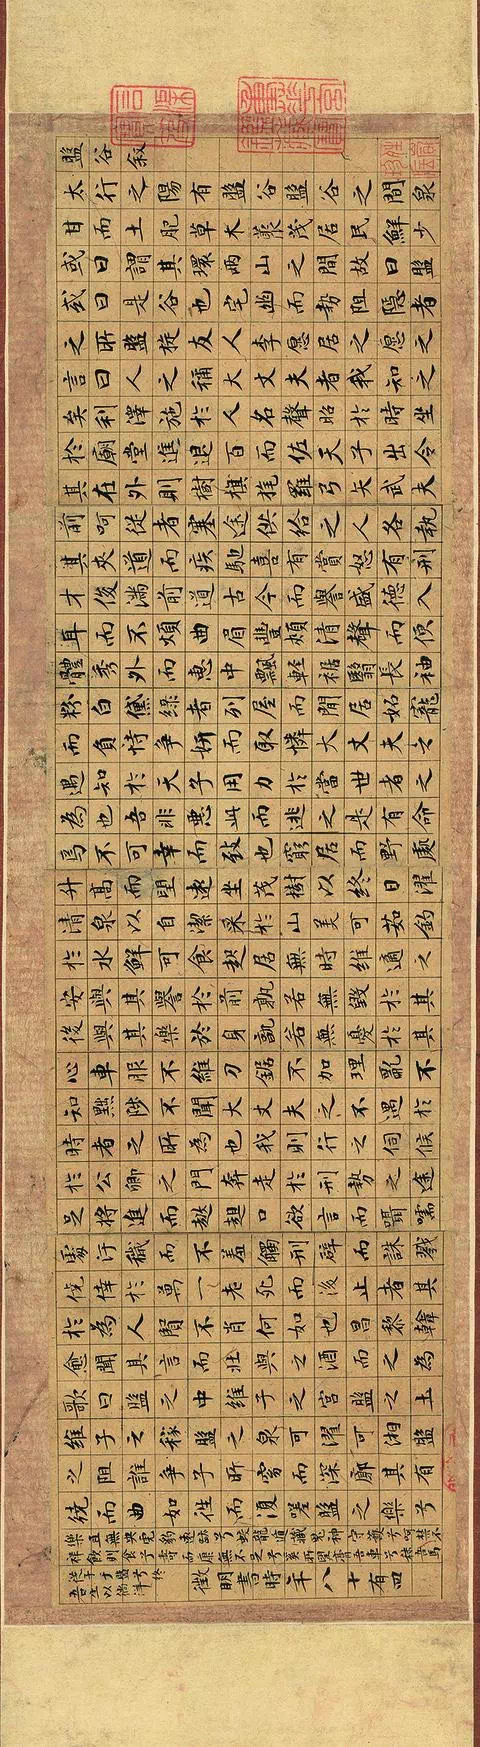 盤谷叙
太行之陽有盤谷盤谷之間泉
甘而土肥草木叢茂居民鮮少
或曰謂其環兩山之間故曰盤
或曰是谷也宅幽而勢阻隱者
之所盤旋友人李愿居之愿之
言曰人之稱大丈夫者我知之
矣利澤施於人名聲昭於時坐
於廟堂進退百而佐天子出令
其在外則樹旗旄羅弓矢武夫
前呵從者塞途供給之人各執
其夾道而疾馳喜有賞怒有刑
才俊滿前道古今而譽盛德入
耳而不煩曲眉豐頰清聲而便
體秀外而惠中飄輕裾翳長袖
粉白黛綠者列屋而閒居妬寵
而負恃爭妍而取憐大丈夫之
遇知於天子用力於當世者之
為也吾非惡此而逃之是有命
焉不可幸而致也窮居而野處
升高而望遠坐茂樹以終日濯
清泉以自潔采於山美可茹釣
於水鮮可食起居無時維適之
安與其譽於前孰若無毀於其
後與其樂於身孰若無憂於其
心車服不維刀鋸不加理亂不
知黜陟不聞大丈夫之不遇於
時者之所為也我則行之伺候
於公卿之門奔走於刑勢之途
足將進而趑趄口欲言而囁嚅
處汙穢而不羞觸刑辟而誅戮
僥倖於萬一老死而後止者其
於為人賢不肖何如也昌黎韓
愈聞其言而壯與之酒而之為
歌曰盤之中維子之宮盤之土
維子之稼盤之泉可濯可湘盤
之阻誰爭子所窈而深廓其有
繞而曲如往而復嗟盤之樂兮
樂且無央虎豹遠跡兮蛟龍遁藏鬼神守護兮呵禁不
祥飲則食兮壽而康無不足兮奚所望膏吾車兮秣吾馬
從子于盤兮終
吾生以徜徉
徵明書時年八十有四